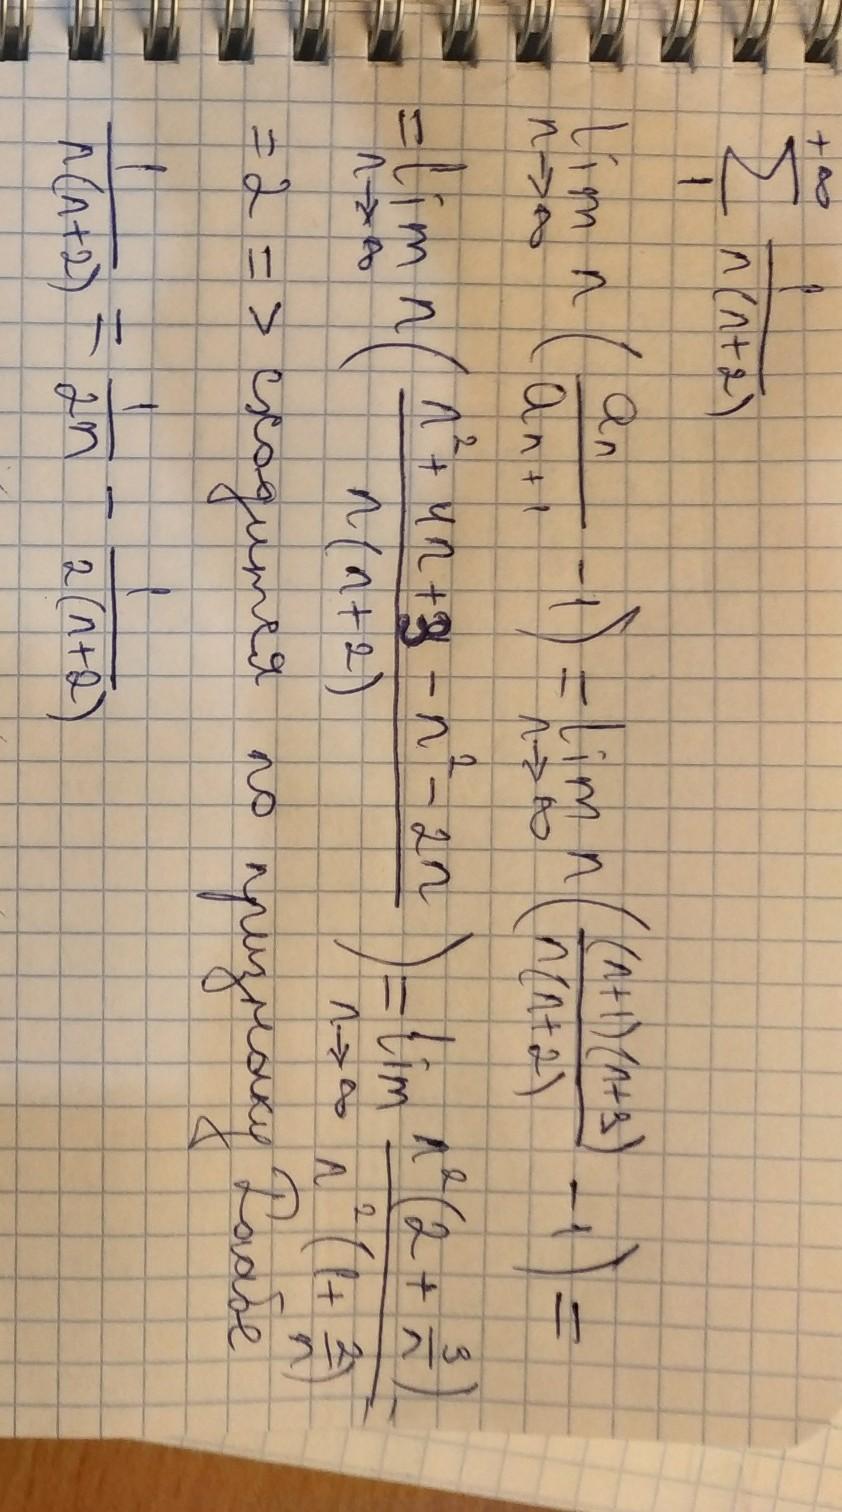 +∞
∑ 1/(n(n+2))
1
lim n→∞ n (aₙ/aₙ₊₁ - 1) = lim n→∞ n ((n+1)(n+3)/(n(n+2)) - 1) =
= lim n→∞ n ((n² + 4n + 3 - n² - 2n)/(n(n+2))) = lim n→∞ n²(2 + 3/n)/(n²(1 + 2/n)) =
= 2 => сходится по признаку Раабе
1/(n(n+2)) = 1/(2n) - 1/(2(n+2))